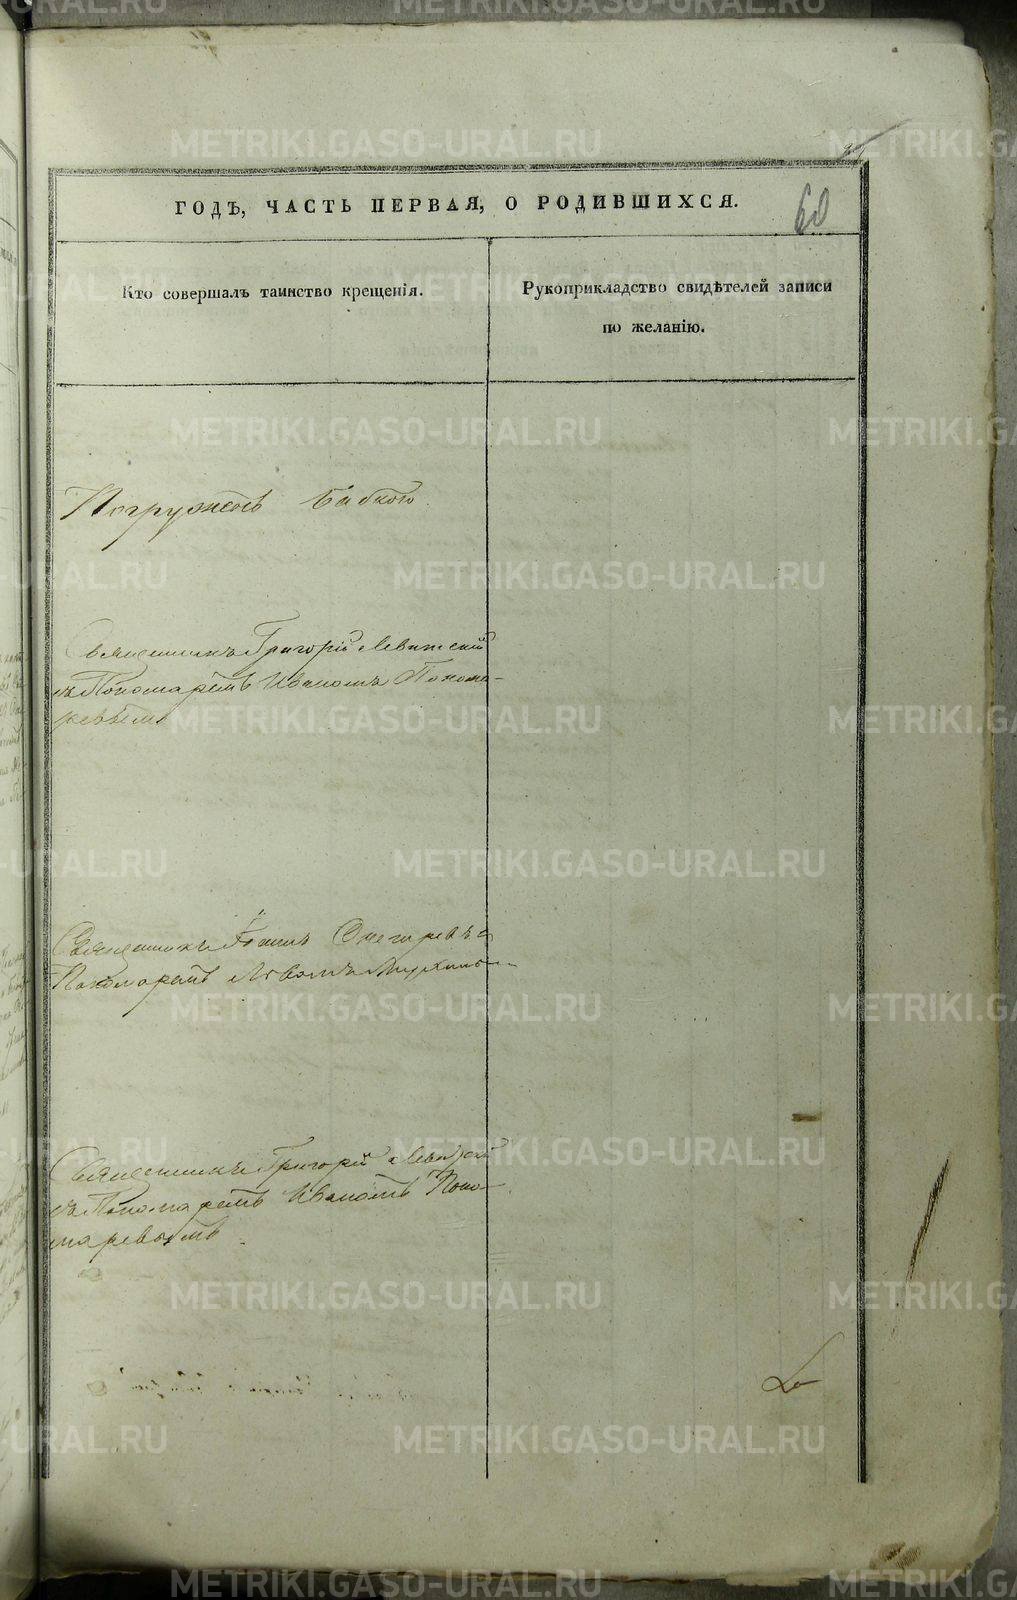 60
ГОДЪ, ЧАСТЬ ПЕРВАЯ, О РОДИВШИХСЯ.
Кто совершалъ таинство крещенія.
Рукоприкладство свидѣтелей записи
по желанію.
Погруженъ бабкою
Священникъ Григорій Левитскій
съ Пономаремъ Иваномъ Понома-
ревымъ
Священникъ Іоаннъ Снегиревъ с
Пономаремъ Львомъ
Священникъ Григорій Левитскій
съ Пономаремъ Иваномъ Поно-
маревымъ
METRIKI.GASO-URAL.RU